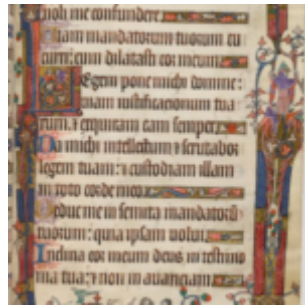 noli me confundere
Uiam mandatorum tuorum cu
curri: cum dilatasti cor meum
Legem pone michi domine:
uiam iustificationum tua
rum: & exquiram eam semper
Da michi intellectum & scrutabor
legem tuam: & custodiam illam
in toto corde meo
Deduc me in semita mandatorū
tuorum: quia ipsam uolui
Inclina cor meum deus in testimo
nia tua: & non in auariciam